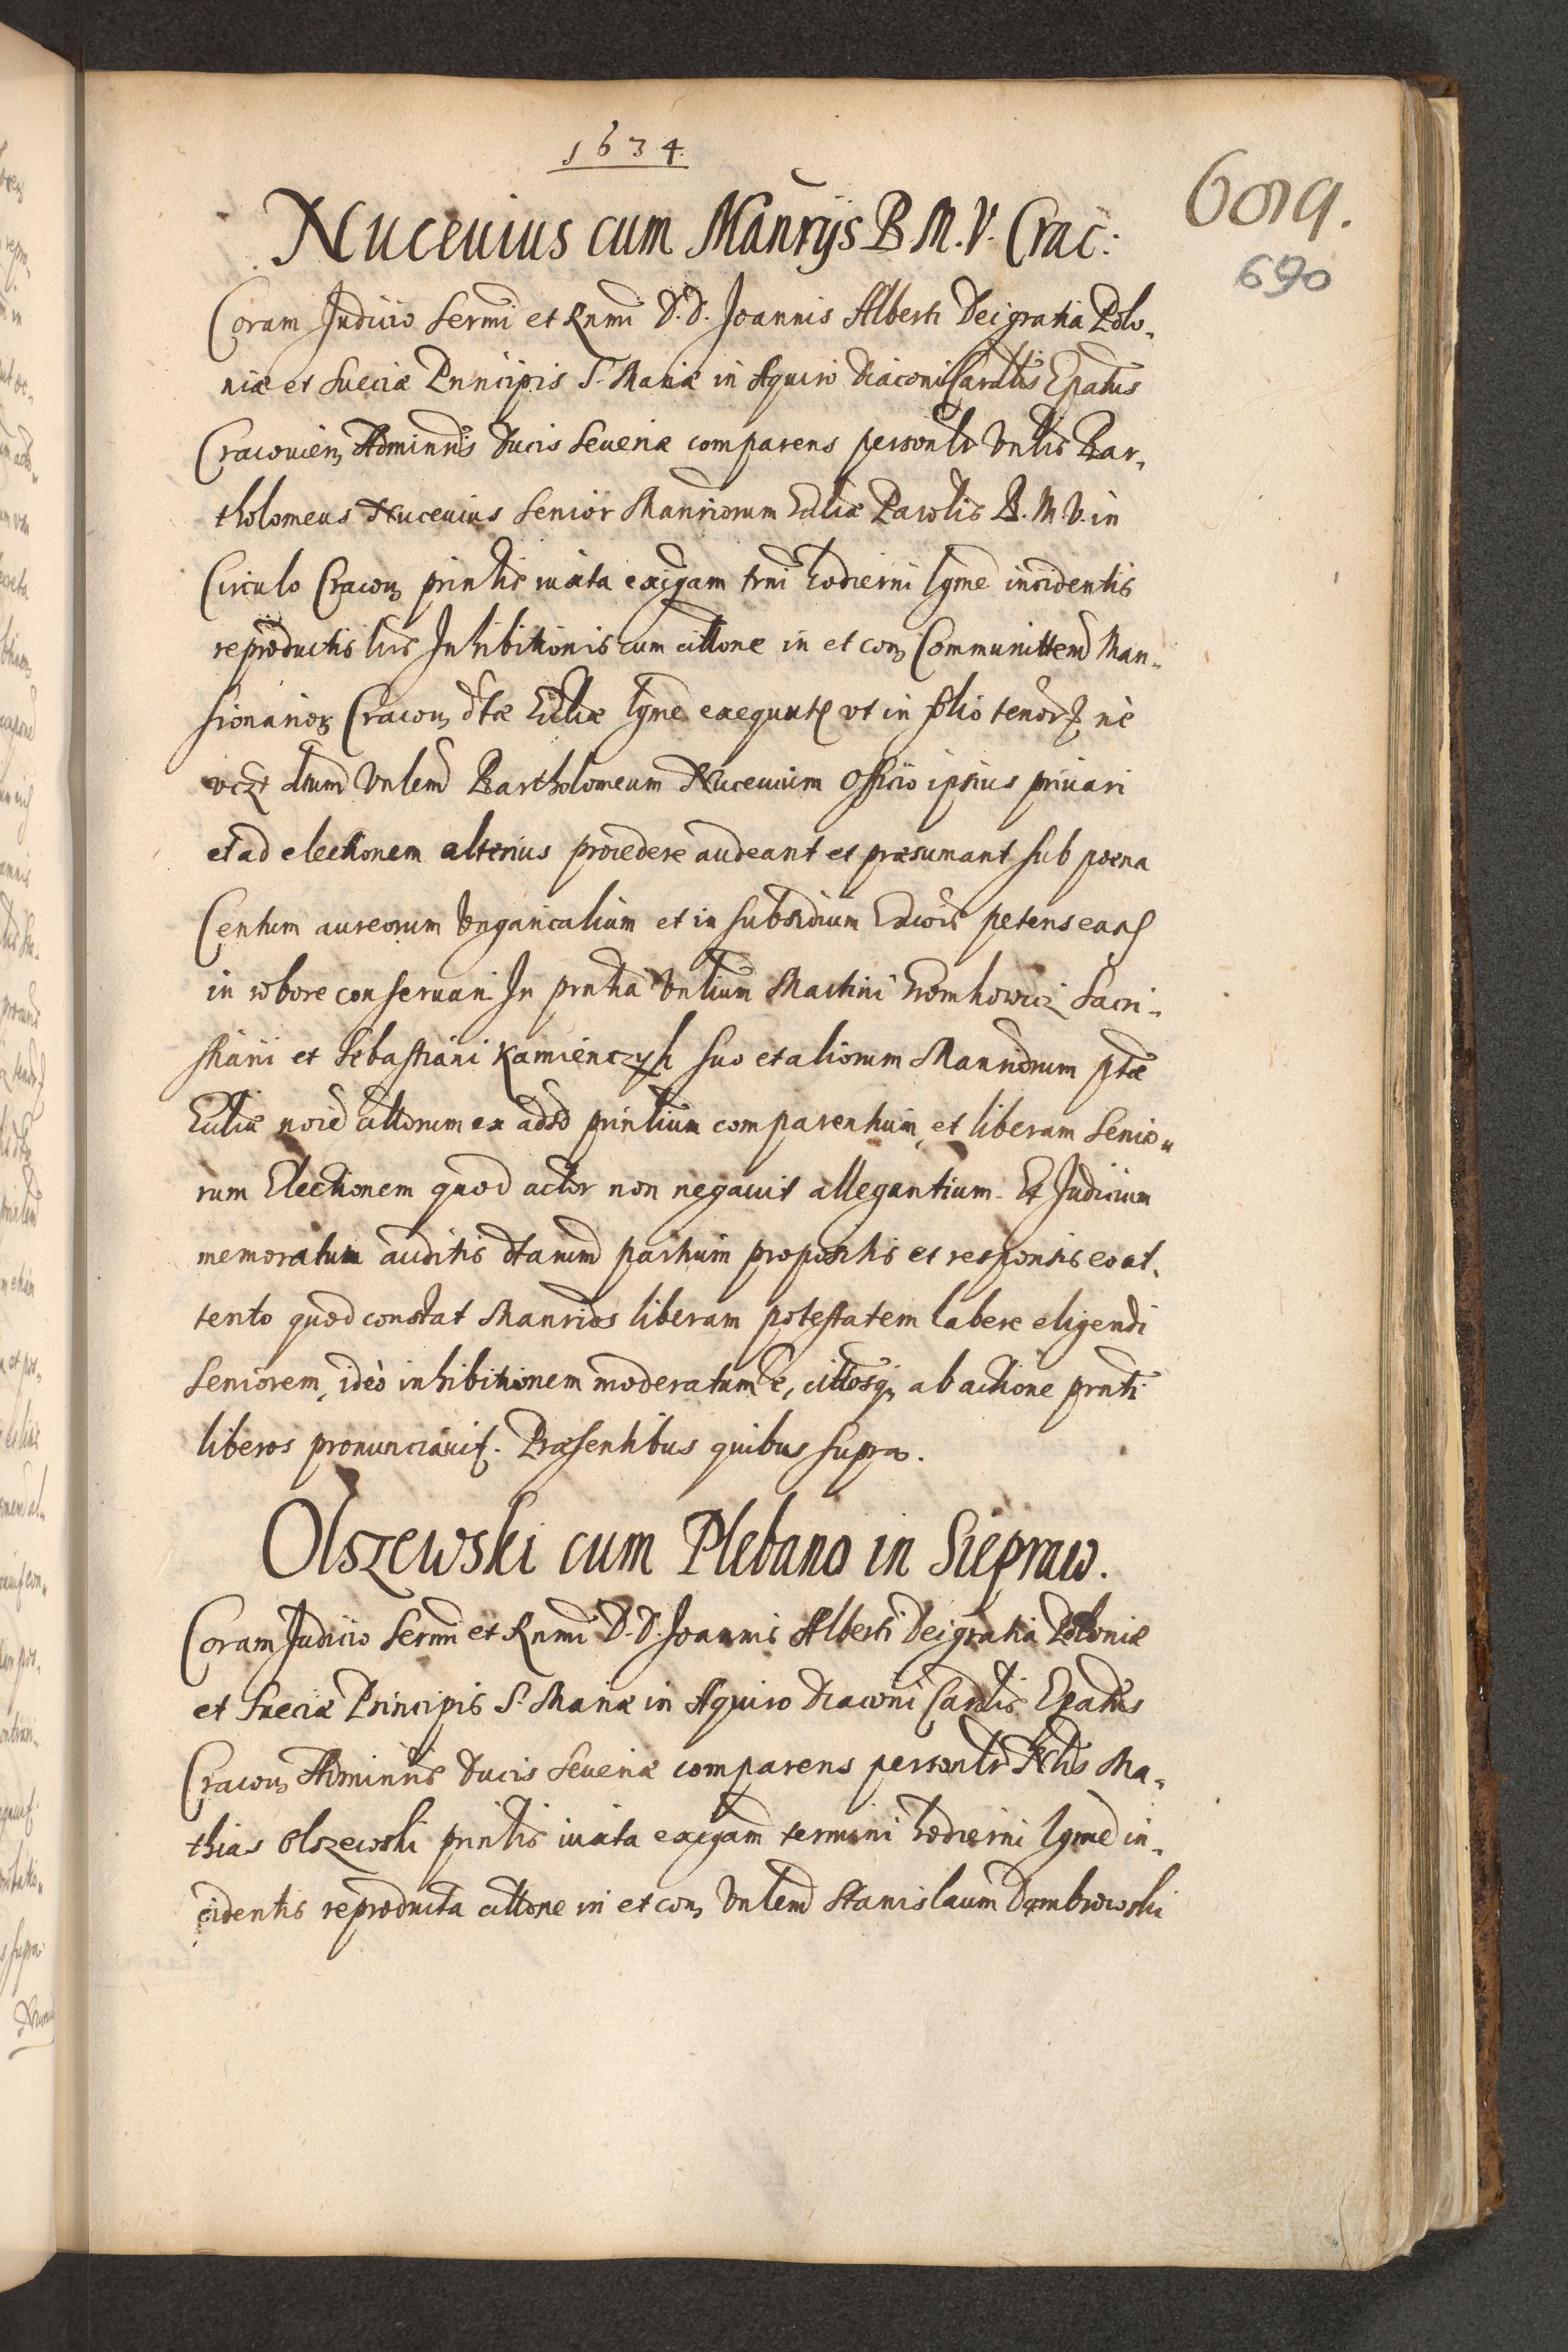 1634.
6019.
690
Nucevius cum Manrijs B M. V. Crac:
Coram Judicio Sermi et Rnmi D. D. Joannis Alberti Dei gratia Polo„
niæ et Sueciæ Principis S. Mariæ in Aquiro Diaconi Cardlis Epatus
Cracovien Adminris Ducis Severiæ comparens personlr Vnlis Bar„
tholomeus Nucevius Senior Manriorum Ecliæ Parolis B. M. V. in
Circulo Cracou printlis iuxta exigam trni hodierni lgme incidentis
reproductis lris Inhibitionis cum cittone in et con Communittem Man„
sionarior Cracou dtæ Ecliæ lgme exequut vt in folio tenor ne
vczt dtum Vnlem Bartholomeum Nucevium Officio ipsius privari
et ad electionem alterius procedere audeant et præsumant sub poena
Centum aureorum Vngaricalium et in subsidium petens eas
in robore conservari. In prntia Vnlium Martini Sacri„
stiani et Sebastiani Kamienczyk suo et aliorum Manriorum ptæ
Ecliæ noie cittorum ex adso printlium comparentium, et liberam Senio„
rum Electionem quod actor non negavit allegantium. Et Judicium
memoratum auditis dtarum partium propositis et responsis eo at„
tento quod constat Manrios liberam potestatem habere eligendi
Seniorem, ideò inhibitionem moderatam e, cittosq ab actione prnti
liberos pronunciavit. Præsentibus quibus supra.
Olszewski cum Plebano in Siepraw.
Coram Judicio Sermi et Rnmi D. D. Joannis Alberti Dei gratia Poloniæ
et Sueciæ Principis S. Mariæ in Aquiro Diaconi Cardlis Epatus
Cracou Adminris Ducis Severiæ comparens personlr Nlis Ma„
thias Olszewski printlis iuxta exigam termini hodierni lgme in„
cidentis reproducta cittone in et con Vnlem Stanislaum Dąmbrowski